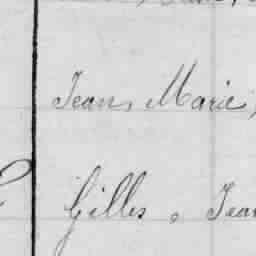 Jean, Marie,
Gilles, Jean